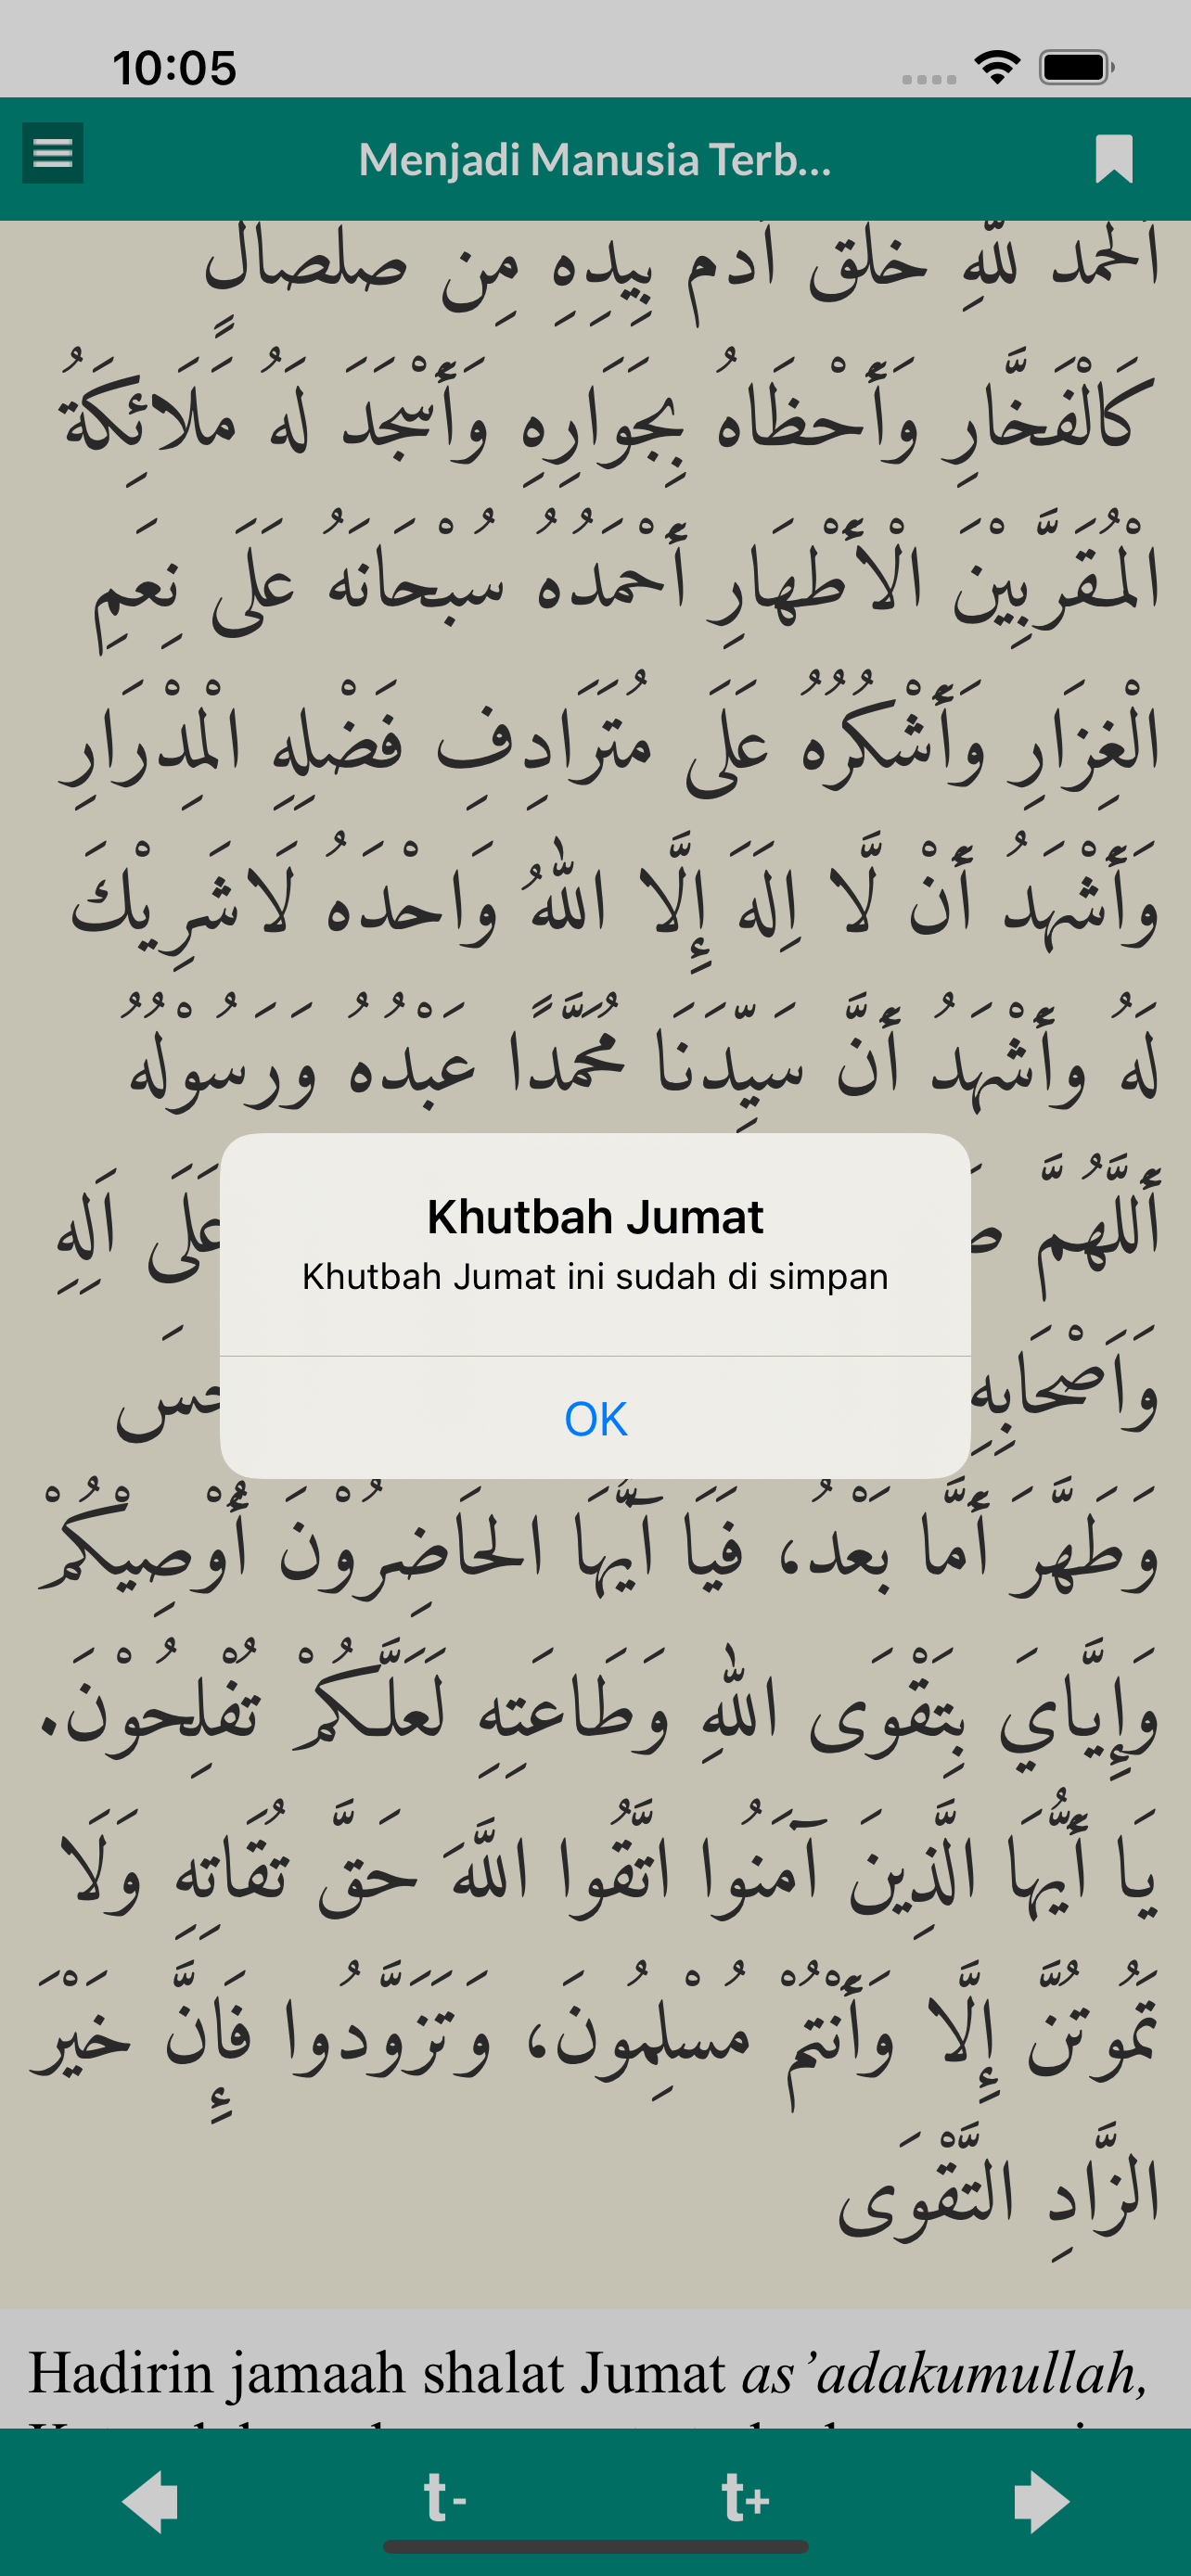 10:05
Menjadi Manusia Terb...
اَلْحَمْدُ للهِ خَلَقَ أَدَمَ بِيِدِهِ مِن صَلْصَالٍ
كَالْفَخَّارِ وَأَحْظَاهُ بِجَوَارِهِ وَأَسْجَدَ لَهُ مَلَائِكَةُ
الْمُقَرَّبِيْنَ الْأَطْهَارِ أَحْمَدُهُ سُبْحَانَهُ عَلَى نِعَمِ
الْغِزَارِ وَأَشْكُرُهُ عَلَى مُتَرَادِفِ فَضْلِهِ الْمِدْرَارِ
وَأَشْهَدُ أَنْ لَّا اِلَهَ إِلَّا اللهُ وَاحْدَهُ لَاشَرِيْكَ
لَهُ وأَشْهَدُ أَنَّ سَيِّدَنَا مُحَمَّدًا عَبْدُهُ وَرَسُوْلُهُ
أَللَّهُمَّ
عَلَى اَلِهِ
وَاَصْحَابِهِ
Khutbah Jumat
Khutbah Jumat ini sudah di simpan
OK
وَطَهَّرَ أَمَّا بَعْدُ، فَيَا آيُّهَا الحَاضِرُوْنَ أُوْصِيْكُمْ
وَإِيَّايَ بِتَقْوَى اللهِ وَطَاعَتِهِ لَعَلَّكُمْ تُفْلِحُوْنَ.
يَا أَيُّهَا الَّذِينَ آمَنُوا اتَّقُوا اللَّهَ حَقَّ تُقَاتِهِ وَلَا
تَمُوتُنَّ إِلَّا وَأَنْتُمْ مُسْلِمُونَ، وَتَزَوَّدُوا فَإِنَّ خَيْرَ
الزَّادِ التَّقْوَى
Hadirin jamaah shalat Jumat as'adakumullah,
t-
t+